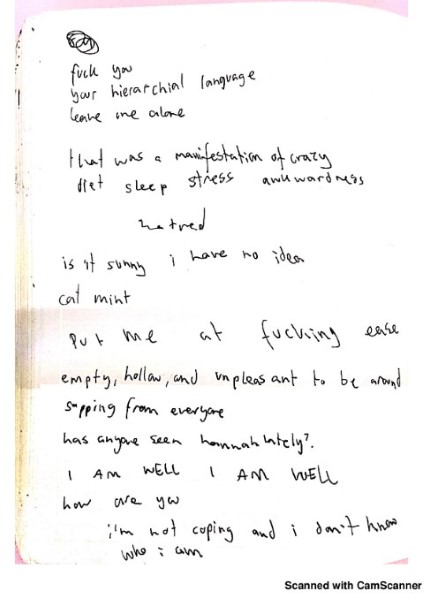 fuck you
your hierarchial language
leave me alone
that was a manifestation of crazy
diet sleep stress awkwardness
hatred
is it sunny i have no idea
cat mint
put me at fucking ease
empty, hollow, and unpleasant to be around
sapping from everyone
has anyone seen hannah lately?.
I AM WELL I AM WELL
how are you
i'm not coping and i don't know
who i am
Scanned with CamScanner